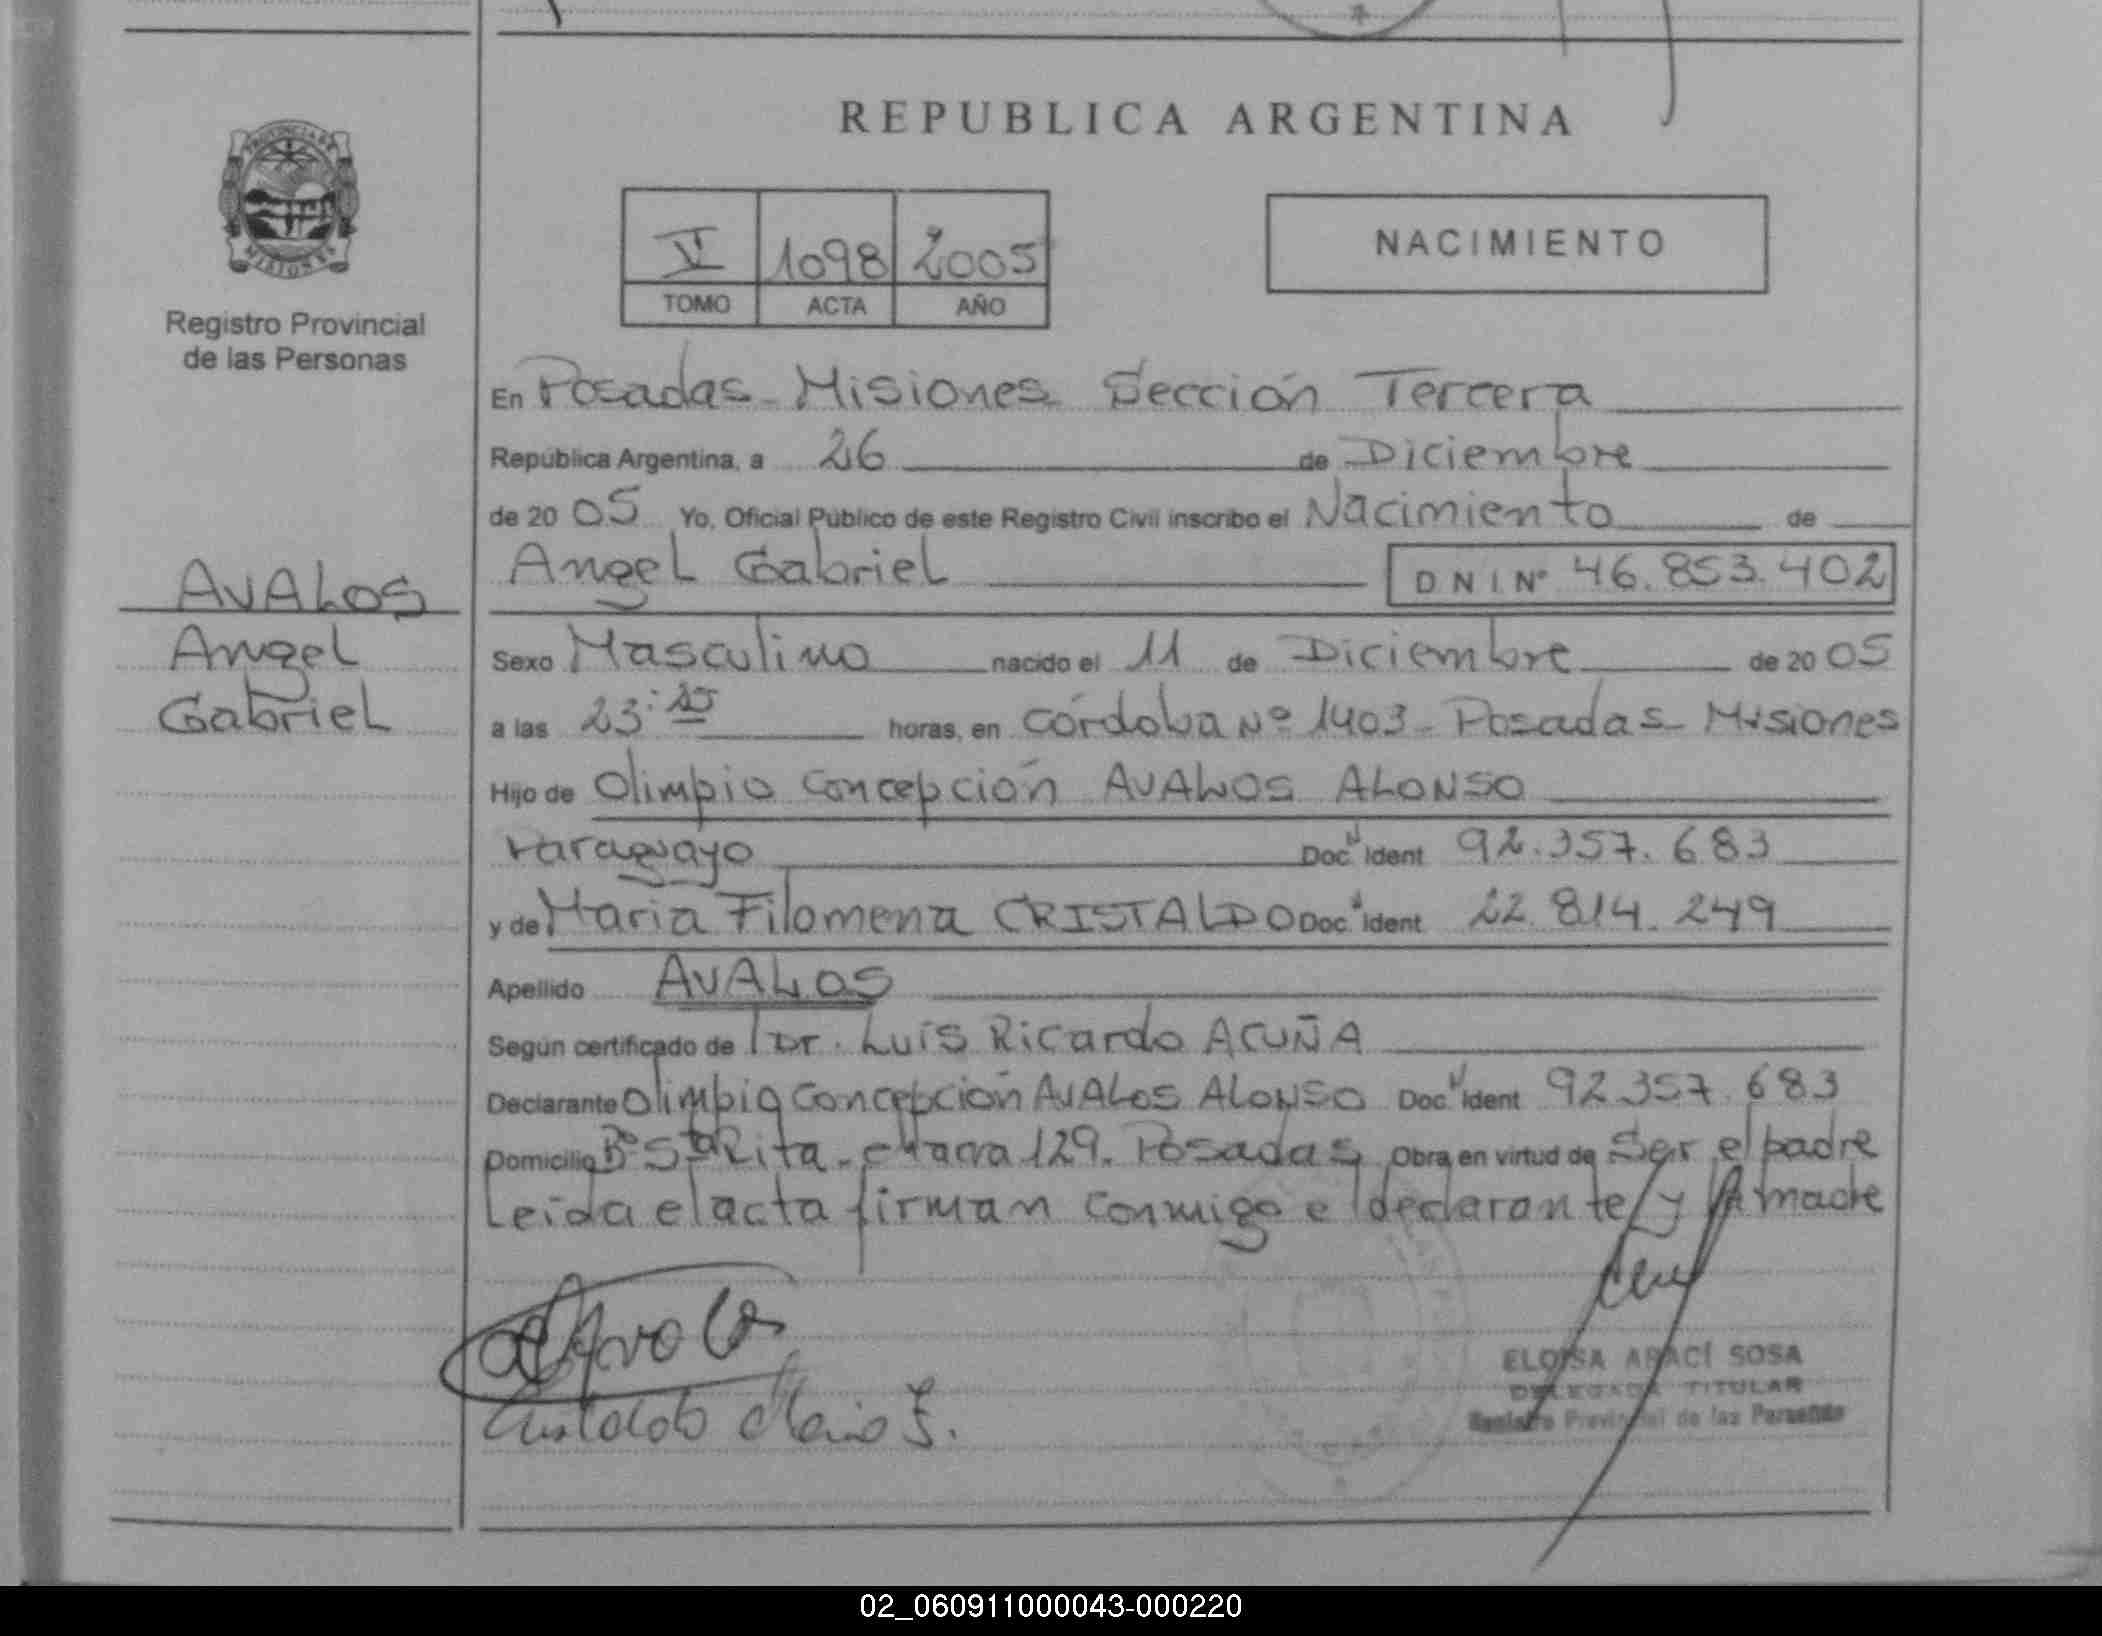 REPUBLICA ARGENTINA
PROVINCIA DE
MISIONES
Registro Provincial
de las Personas
V 1098 2005
TOMO ACTA AÑO
NACIMIENTO
En Posadas - Misiones Sección Tercera
Republica Argentina, a 26 de Diciembre
de 20 05 Yo, Oficial Público de este Registro Civil inscribo el Nacimiento de
Angel Gabriel D N I Nº 46.853.402
AVALOS
Angel
Gabriel
Sexo Masculino nacido el 11 de Diciembre de 20 05
a las 23:25 horas, en Córdoba Nº 1403 - Posadas - Misiones
Hijo de Olimpio Concepción AVALOS ALONSO
Paraguayo Doc. Ident 92.357.683
y de Maria Filomena CRISTALDO Doc. Ident 22.814.249
Apellido AVALOS
Según certificado de Dr. Luis Ricardo ACUÑA
Declarante Olimpio Concepción AVALOS ALONSO Doc. Ident 92.357.683
Domicilio Bº Sta Rita - chacra 129. Posadas Obra en virtud de Ser el padre
Leida el acta firman conmigo el declarante y la madre
Cristaldo Maria F.
ELOISA ARACÍ SOSA
DELEGADA TITULAR
Registro Provincial de las Personas
02_060911000043-000220